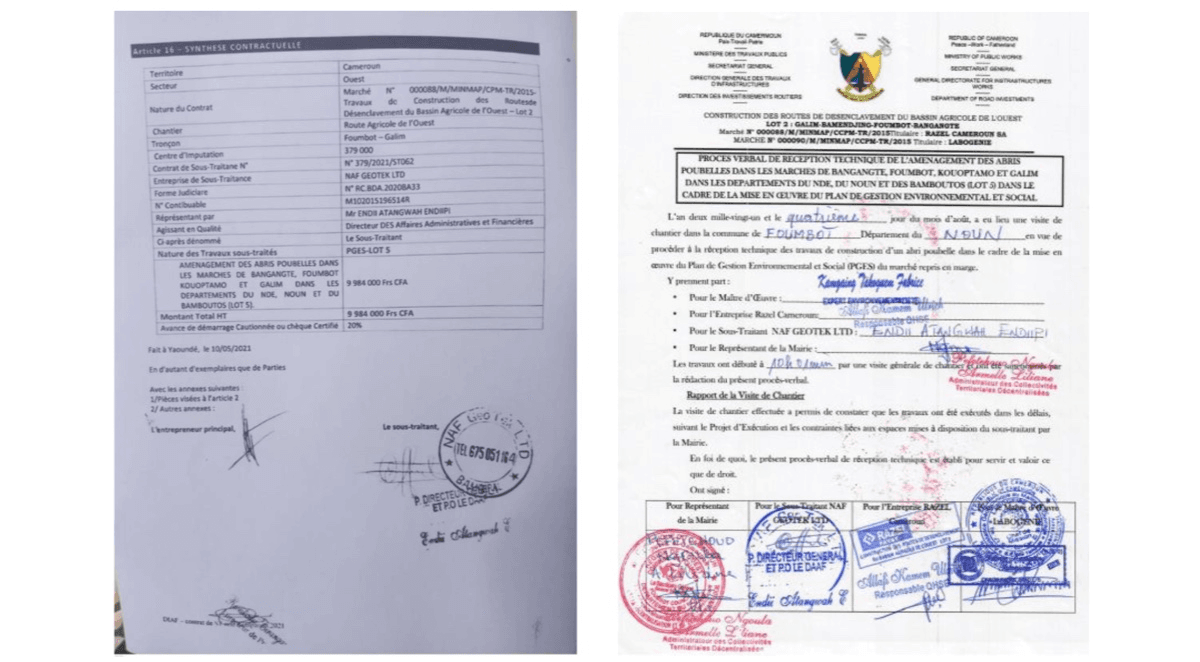 Article 16 – SYNTHESE CONTRACTUELLE
Territoire
Cameroun
Secteur
Ouest
Nature du Contrat
Marché N° 000088/M/MINMAP/CPM-TR/2015-
Travaux de Construction des Routesde
Désenclavement du Bassin Agricole de l'Ouest – Lot 2
Chantier
Route Agricole de l'Ouest
Tronçon
Foumbot – Galim
Centre d'Imputation
379 000
Contrat de Sous-Traitane N°
N° 379/2021/ST062
Entreprise de Sous-Traitance
NAF GEOTEK LTD
Forme Judiciare
N° RC.BDA.2020BA33
N° Contibuable
M102015196514R
Réprésentant par
Mr ENDII ATANGWAH ENDIIPI
Agissant en Qualité
Directeur DES Affaires Administratives et Financières
Ci-après dénommé
Le Sous-Traitant
Nature des Travaux sous-traités
PGES-LOT 5
AMENAGEMENT DES ABRIS POUBELLES DANS
LES MARCHES DE BANGANGTE, FOUMBOT
KOUOPTAMO ET GALIM DANS LES
DEPARTEMENTS DU NDE, NOUN ET DU
BAMBOUTOS (LOT 5).
9 984 000 Frs CFA
Montant Total HT
9 984 000 Frs CFA
Avance de démarrage Cautionnée ou chèque Certifié
20%
Fait à Yaoundé, le 10/05/2021
En d'autant d'exemplaires que de Parties
Avec les annexes suivantes :
1/Pièces visées à l'article 2
2/ Autres annexes :
L'entrepreneur principal,
Le sous-traitant,
NAF GEOTEK LTD
TEL 675 051 164
BAMENDA
P. DIRECTEUR
ET P.O LE DAAF
Endii Atangwah E
REPUBLIQUE DU CAMERMOUN
Paix-Travail-Patrie
MINISTERE DES TRAVAUX PUBLICS
SECRETARIAT GENERAL
DIRECTION GENERALE DES TRAVAUX
D'INFRASTRUCTURES
DIRECTION DES INVESTISSEMENTS ROUTIERS
REPUBLIC OF CAMEROON
Peace –Work – Fatherland
MINISTRY OF PUBLIC WORKS
SECRETARIAT GENERAL
GENERAL DIRECTORATE FOR INSTRASTRUCTURES
WORKS
DEPARTMENT OF ROAD INVESTMENTS
CONSTRUCTION DES ROUTES DE DESENCLAVEMENT DU BASSIN AGRICOLE DE L'OUEST
LOT 2 : GALIM-BAMENDJING-FOUMBOT-BANGANGTE
Marché N° 000088/M/MINMAP/CCPM-TR/2015Titulaire : RAZEL CAMEROUN SA
MARCHE N° 000090/M/MINMAP/CCPM-TR/2015 Titulaire : LABOGENIE
PROCES VERBAL DE RECEPTION TECHNIQUE DE L'AMENAGEMENT DES ABRIS
POUBELLES DANS LES MARCHES DE BANGANGTE, FOUMBOT, KOUOPTAMO ET GALIM
DANS LES DEPARTEMENTS DU NDE, DU NOUN ET DES BAMBOUTOS (LOT 5) DANS LE
CADRE DE LA MISE EN ŒUVRE DU PLAN DE GESTION ENVIRONNEMENTAL ET SOCIAL
L'an deux mille-vingt-un et le quatrième jour du mois d'août, a eu lieu une visite de
chantier dans la commune de FOUMBOT Département du NOUN en vue de
procéder à la réception technique des travaux de construction d'un abri poubelle dans le cadre de la mise en
œuvre du Plan de Gestion Environnemental et Social (PGES) du marché repris en marge.
Y prennent part :
• Pour le Maître d'Œuvre :
EXPERT ENVIRONNEMENTALISTE
• Pour l'Entreprise Razel Cameroun:
Responsable QHSE
• Pour le Sous-Traitant NAF GEOTEK LTD : ENDII ATANGWAH ENDIIPI
• Pour le Représentant de la Mairie :
Armelle Liliane
Administrateur des Collectivités
Territoriales Décentralisées
Les travaux ont débuté à par une visite générale de chantier et ont été
la rédaction du présent procès-verbal.
Rapport de la Visite de Chantier
La visite de chantier effectuée a permis de constater que les travaux ont été exécutés dans les délais,
suivant le Projet d'Exécution et les contraintes liées aux espaces mises à disposition du sous-traitant par
la Mairie.
En foi de quoi, le présent procès-verbal de réception technique est établi pour servir et valoir ce
que de droit.
Ont signé :
Pour Représentant
de la Mairie
Pour le Sous-Traitant NAF
GEOTEK LTD
Pour l'Entreprise RAZEL
Cameroun
Pour le Maître d'Œuvre
LABOGENIE
P. DIRECTEUR GENERAL
ET P.O LE DAAF
Endii Atangwah E
RAZEL
Responsable QHSE
Ngoula
Armelle Liliane
Administrateur des Collectivités
Territoriales Décentralisées